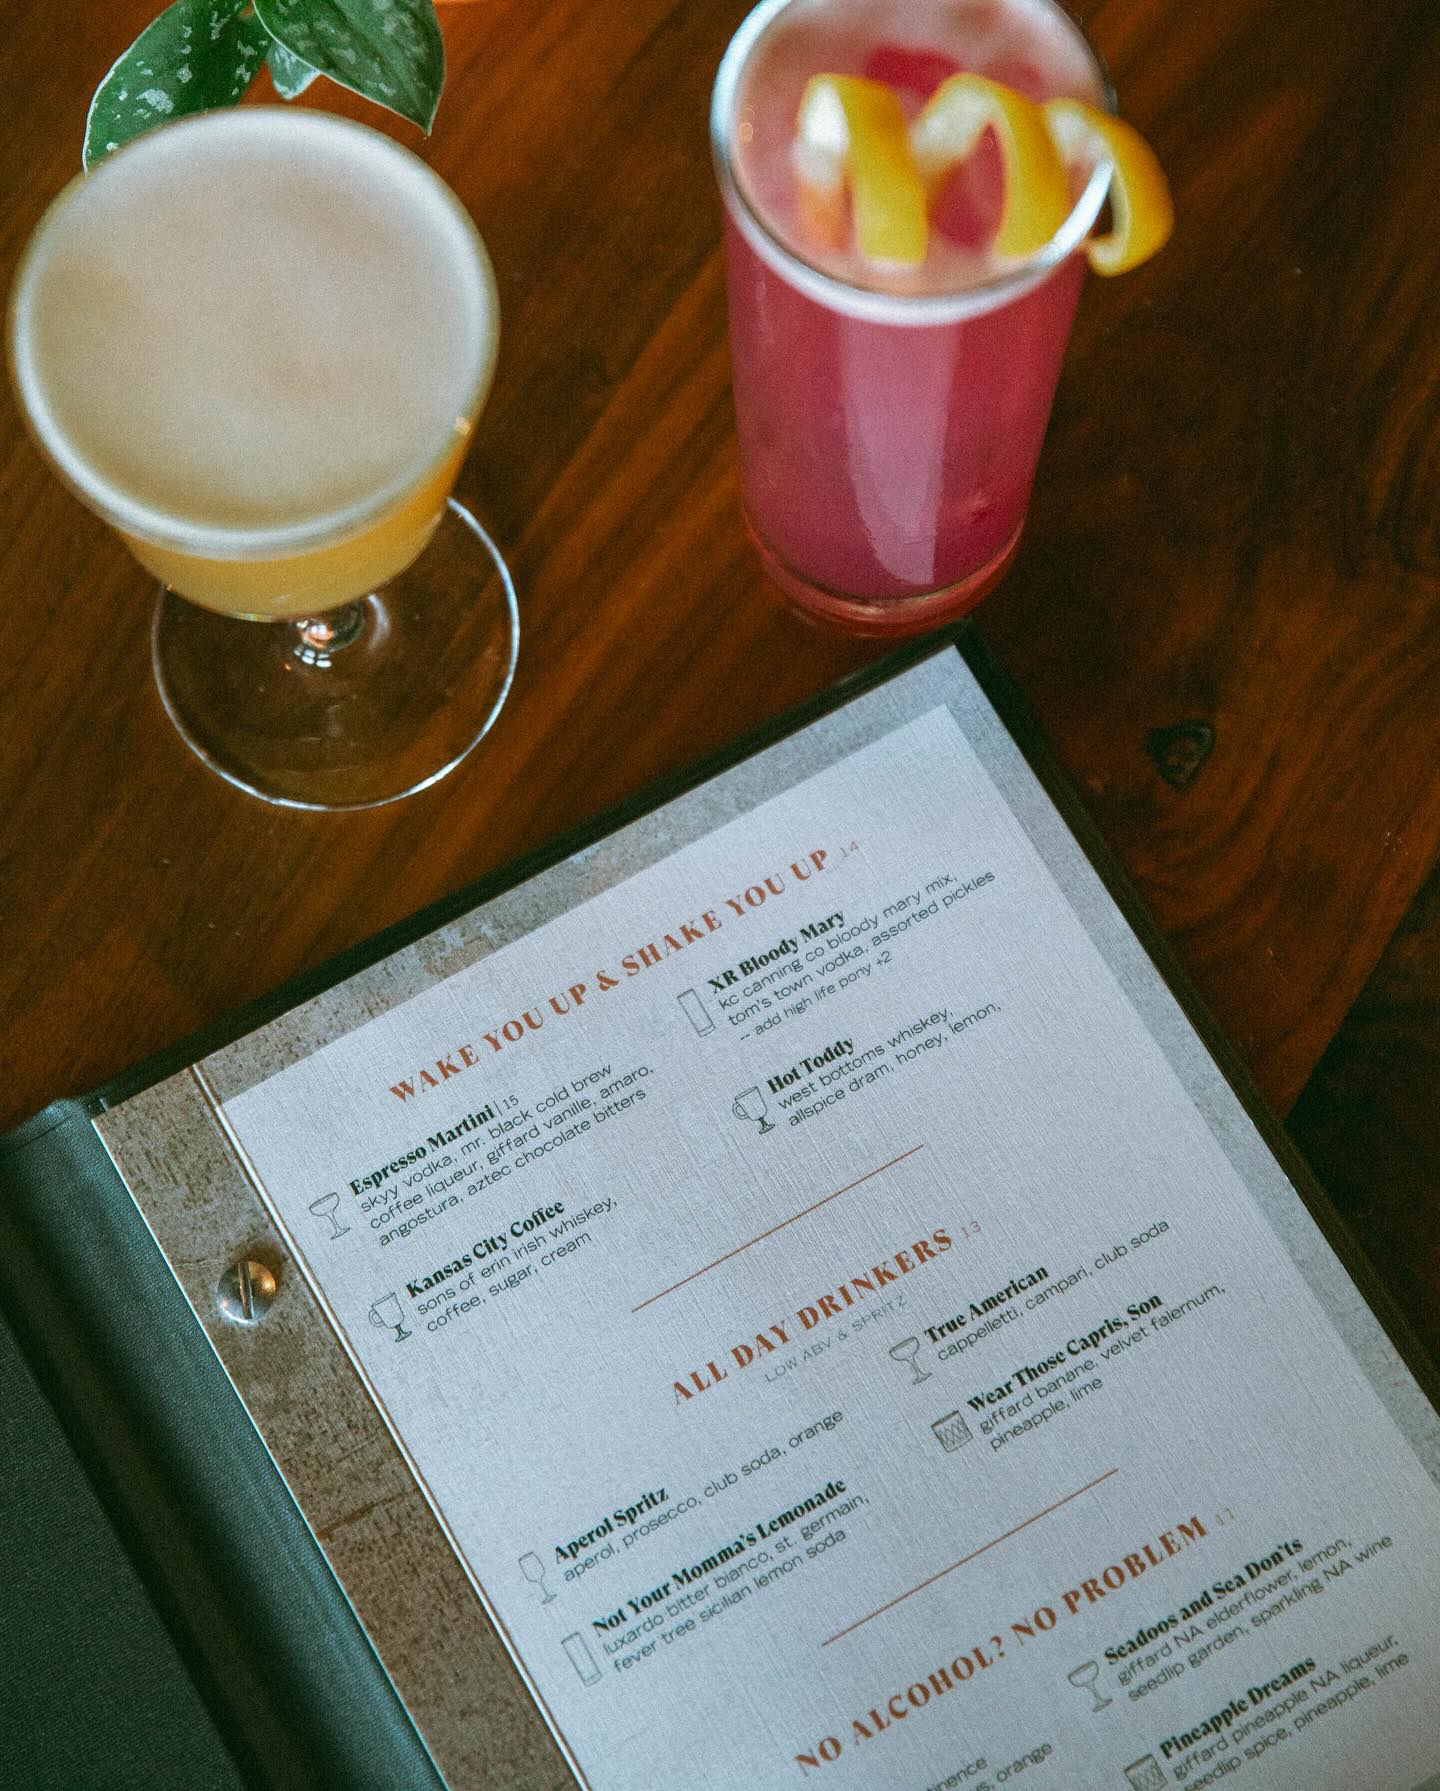 WAKE YOU UP & SHAKE YOU UP 14
Espresso Martini | 15
skyy vodka, mr. black cold brew
coffee liqueur, giffard vanille, amaro,
angostura, aztec chocolate bitters
Kansas City Coffee
sons of erin irish whiskey,
coffee, sugar, cream
XR Bloody Mary
kc canning co bloody mary mix,
tom's town vodka, assorted pickles
-- add high life pony +2
Hot Toddy
west bottoms whiskey,
allspice dram, honey, lemon,
ALL DAY DRINKERS 13
LOW ABV & SPRITZ
Aperol Spritz
aperol, prosecco, club soda, orange
Not Your Momma's Lemonade
luxardo bitter bianco, st. germain,
fever tree sicilian lemon soda
True American
cappelletti, campari, club soda
Wear Those Capris, Son
giffard banane, velvet falernum,
pineapple, lime
NO ALCOHOL? NO PROBLEM 11
Seadoos and Sea Don'ts
giffard NA elderflower, lemon,
seedlip garden, sparkling NA wine
Pineapple Dreams
giffard pineapple NA liqueur,
seedlip spice, pineapple, lime
orange